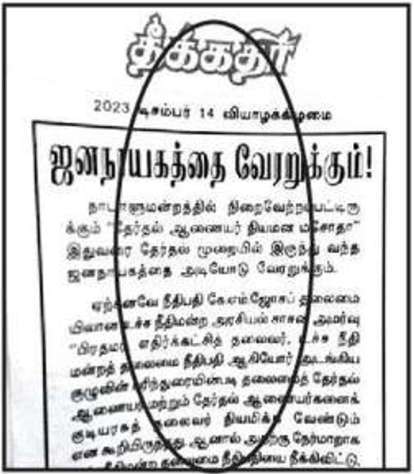 தீக்கதிர்
2023 டிசம்பர் 14 வியாழக்கிழமை
ஜனநாயகத்தை வேரறுக்கும்!
நாடாளுமன்றத்தில் நிறைவேற்றப்பட்டிரு
க்கும் “தேர்தல் ஆணையர் நியமன மசோதா”
இதுவரை தேர்தல் முறையில் இருந்து வந்த
ஜனநாயகத்தை அடியோடு வேரறுக்கும்.
ஏற்கனவே நீதிபதி கே.எம்.ஜோசப் தலைமை
யிலான உச்ச நீதிமன்ற அரசியல் சாசன அமர்வு
“பிரதமர், எதிர்க்கட்சித் தலைவர், உச்ச நீதி
மன்றத் தலைமை நீதிபதி ஆகியோர் அடங்கிய
குழுவின் பரிந்துரையின்படி தலைமைத் தேர்தல்
ஆணையர் மற்றும் தேர்தல் ஆணையர்களைக்
குடியரசுத் தலைவர் நியமிக்க வேண்டும்
என கூறியிருந்தது. ஆனால் அதற்கு நேர்மாறாக
நீதிமன்ற தலைமை நீதிபதியை நீக்கிவிட்டு,